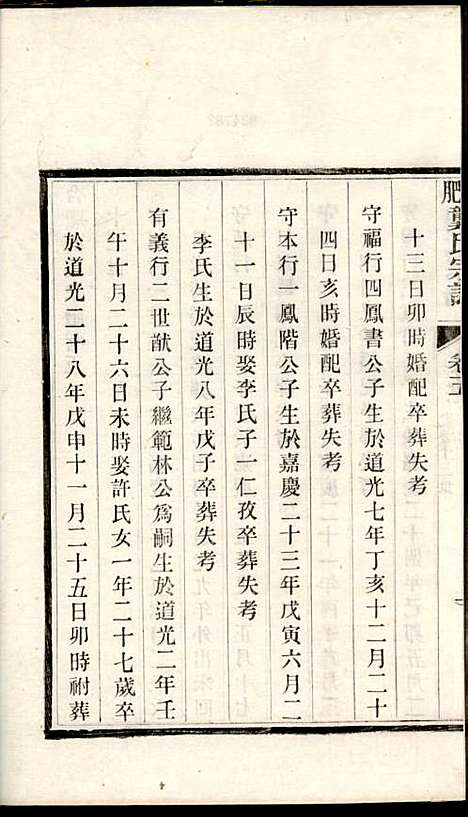 肥龔氏宗譜 卷五
十三日卯時婚配卒葬失考
守福行四鳳書公子生於道光七年丁亥十二月二十
四日亥時婚配卒葬失考
守本行一鳳階公子生於嘉慶二十三年戊寅六月二
十一日辰時娶李氏子一仁孜卒葬失考
李氏生於道光八年戊子卒葬失考
有義行二世猷公子繼範林公爲嗣生於道光二年壬
午十月二十六日未時娶許氏女一年二十七歲卒
於道光二十八年戊申十一月二十五日卯時祔葬